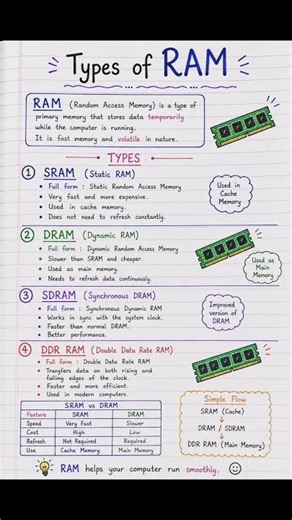 Types of RAM
RAM (Random Access Memory) is a type of
primary memory that stores data temporarily
while the computer is running.
It is fast memory and volatile in nature.
TYPES
1 SRAM (Static RAM)
• Full form : Static Random Access Memory
• Very fast and more expensive.
• Used in cache memory.
• Does not need to refresh constantly.
Used in
Cache
Memory
2 DRAM (Dynamic RAM)
• Full form : Dynamic Random Access Memory
• Slower than SRAM and cheaper.
• Used as main memory.
• Needs to refresh data continuously.
Used as
Main
Memory
3 SDRAM (Synchronous DRAM)
• Full form : Synchronous Dynamic RAM
• Works in sync with the system clock.
• Faster than normal DRAM.
• Better performance.
Improved
version of
DRAM
4 DDR RAM (Double Data Rate RAM)
• Full form : Double Data Rate RAM
• Transfers data on both rising and
falling edges of the clock.
• Faster and more efficient.
• Used in modern computers.
SRAM vs DRAM
Feature SRAM DRAM
Speed Very Fast Slower
Cost High Low
Refresh Not Required Required
Use Cache Memory Main Memory
Simple Flow
SRAM (Cache)
↓
DRAM / SDRAM
↓
DDR RAM (Main Memory)
RAM helps your computer run smoothly.